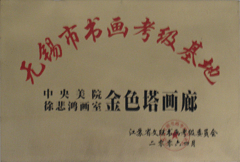 无锡市书画考级基地
中央美院
徐悲鸿画室
金色塔画廊
江苏省文联书画考级委员会
二零零六年四月